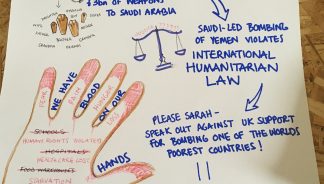 $3bn of WEAPONS
TO SAUDI ARABIA
SAUDI-LED BOMBING
OF YEMEN VIOLATES
INTERNATIONAL
HUMANITARIAN
LAW
WE HAVE
BLOOD
ON OUR
HANDS
FEAR
PAIN
SCHOOLS
HUMAN RIGHTS VIOLATED
HOSPITALS
HEALTHCARE LOSS
FOOD WAREHOUSES
STARVATION
PLEASE SARAH-
SPEAK OUT AGAINST UK SUPPORT
FOR BOMBING ONE OF THE WORLDS
POOREST COUNTRIES!